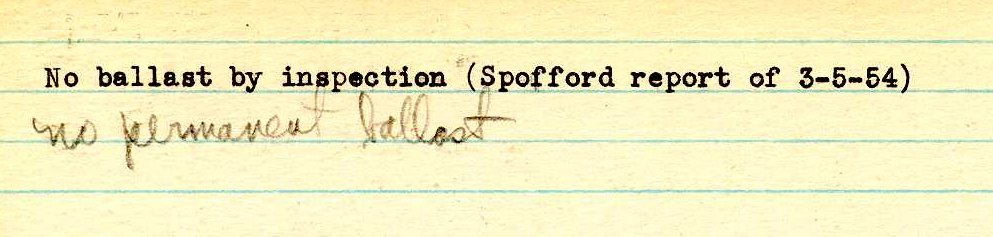 No ballast by inspection (Spofford report of 3-5-54)
no permanent ballast